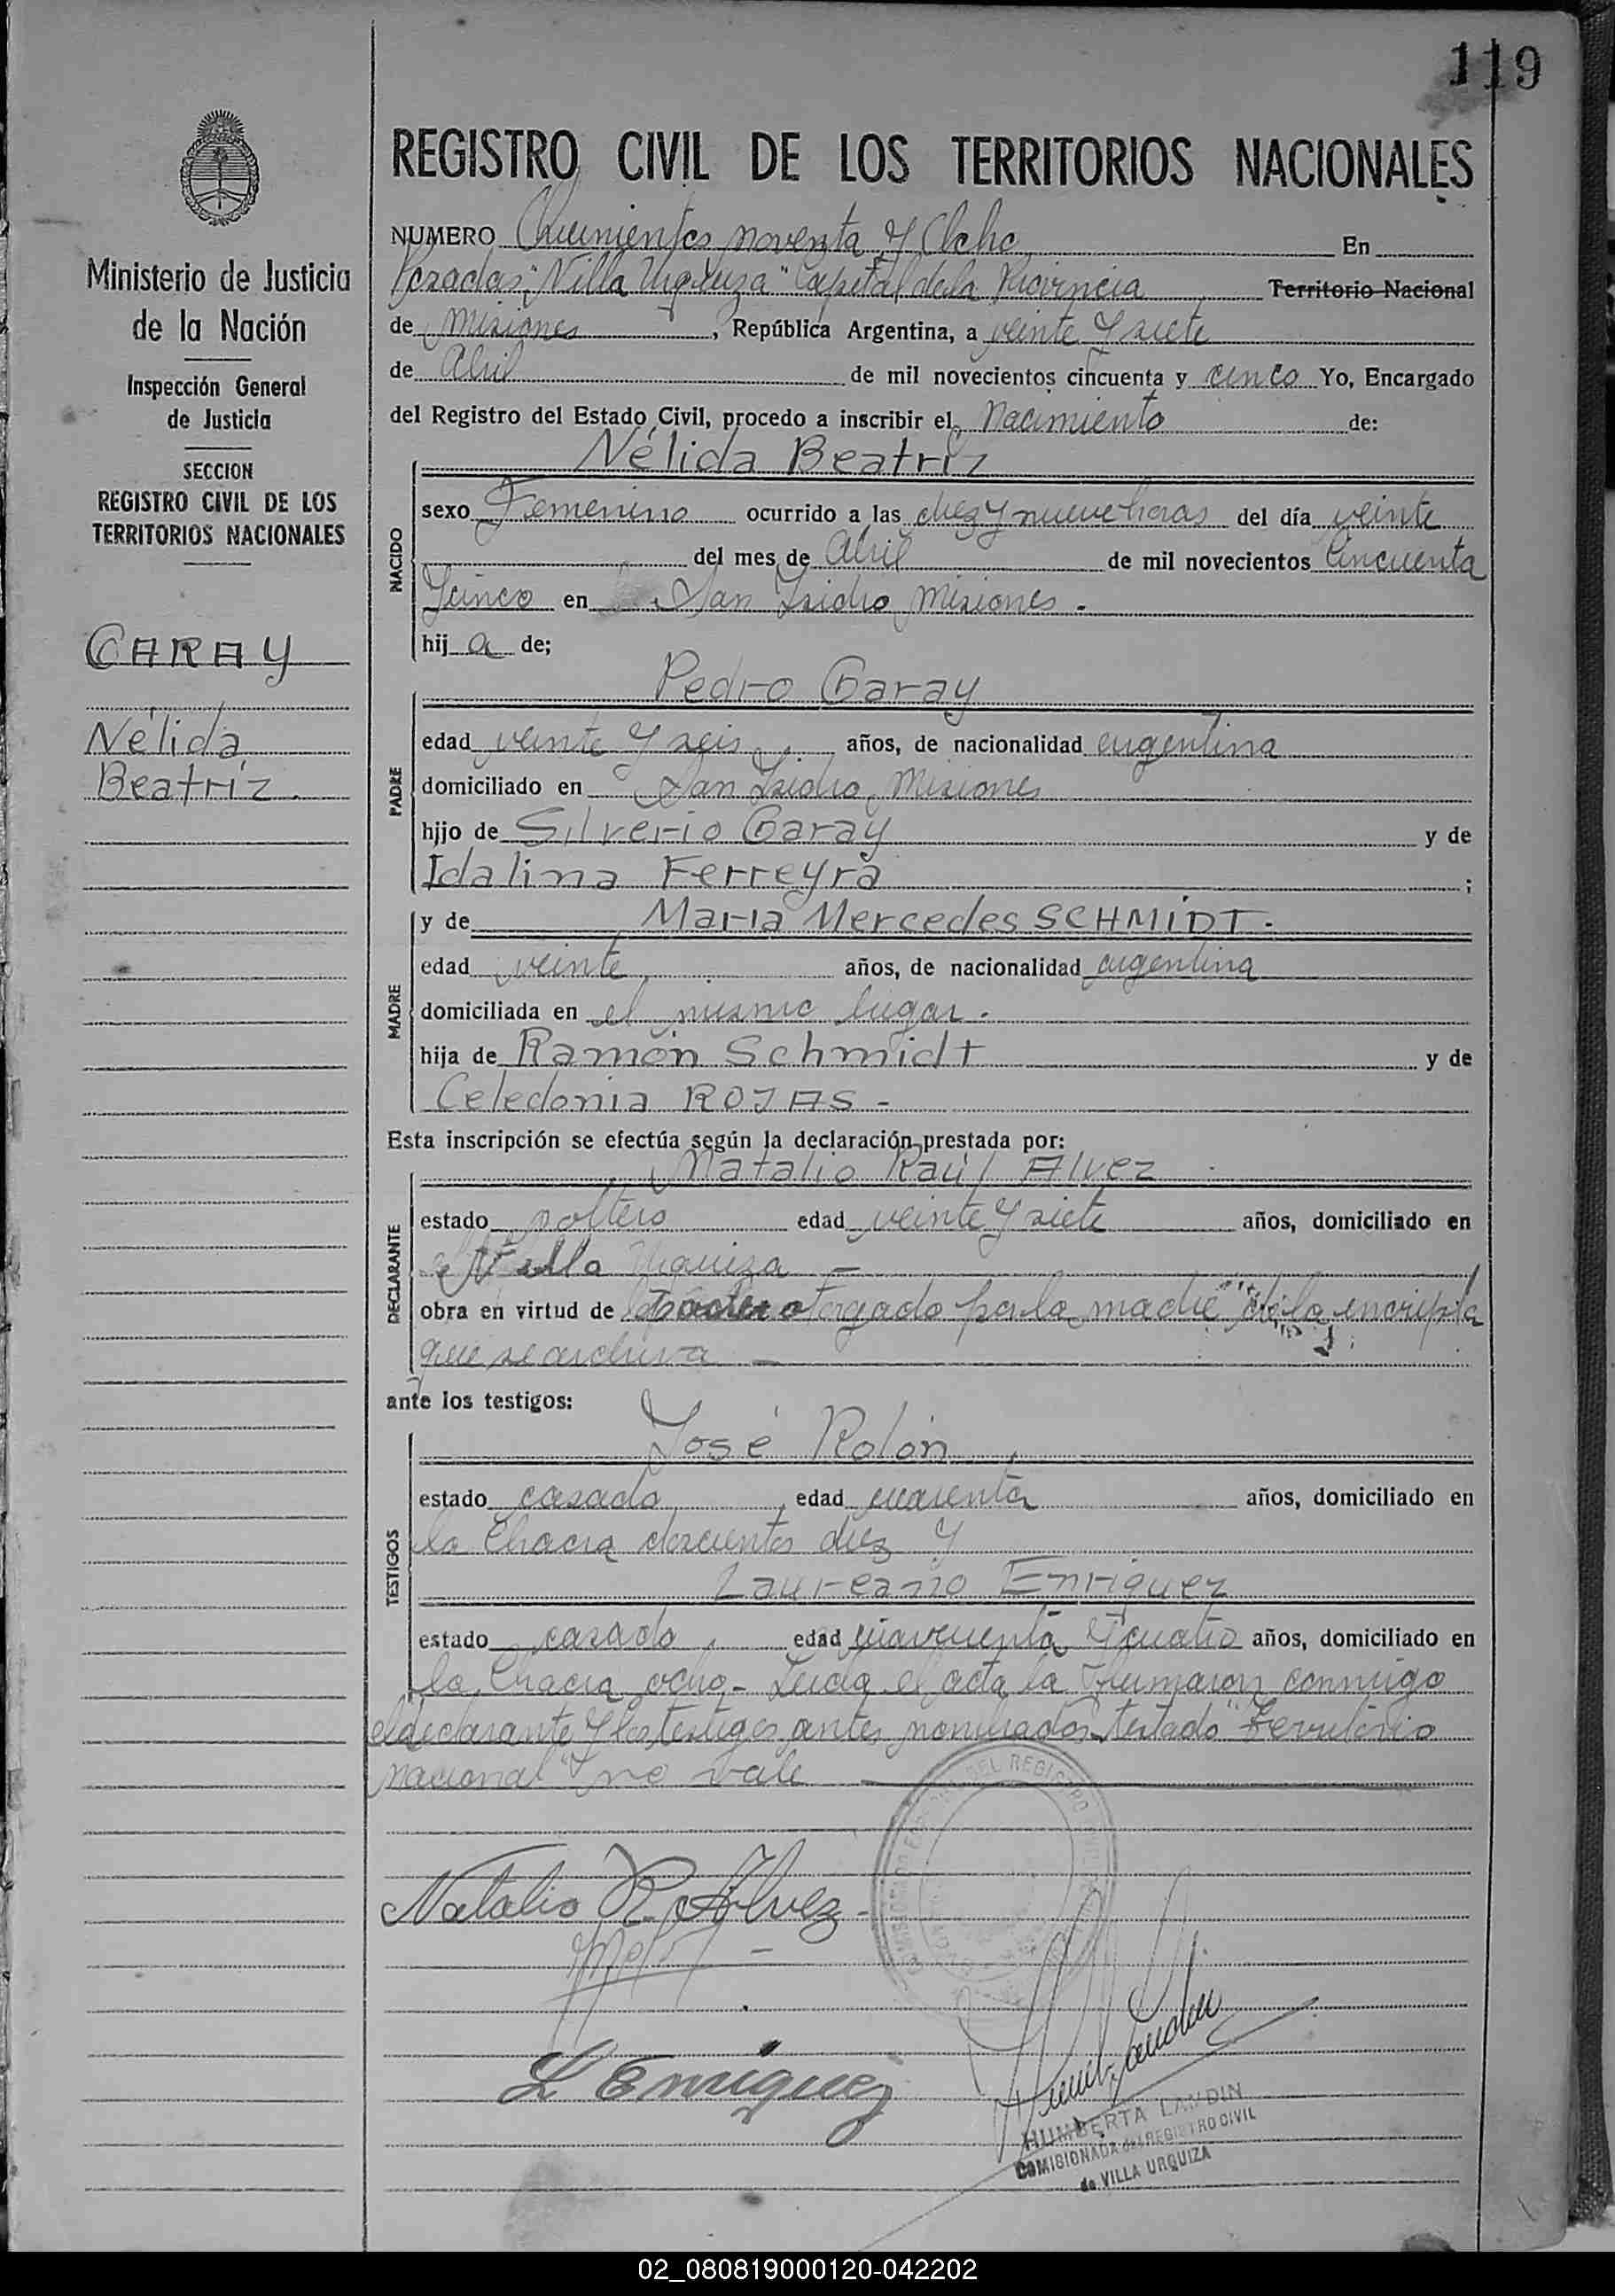 119
REGISTRO CIVIL DE LOS TERRITORIOS NACIONALES
Ministerio de Justicia
de la Nación
Inspección General
de Justicia
SECCION
REGISTRO CIVIL DE LOS
TERRITORIOS NACIONALES
GARAY
Nélida
Beatríz.
NUMERO Quinientos noventa y Ocho En
Posadas "Villa Urquiza" Capital de la Provincia Territorio Nacional
de Misiones, República Argentina, a veinte y siete
de Abril de mil novecientos cincuenta y cinco Yo, Encargado
del Registro del Estado Civil, procedo a inscribir el Nacimiento de:
Nélida Beatríz
NACIDO
sexo Femenino ocurrido a las diez y nueve horas del día veinte
del mes de Abril de mil novecientos Cincuenta
y cinco en San Isidro Misiones.
hij a de;
Pedro Garay
PADRE
edad veinte y seis años, de nacionalidad argentina
domiciliado en San Isidro Misiones
hijo de Silverio Garay y de
Idalina Ferreyra ;
y de María Mercedes SCHMIDT.
MADRE
edad veinte años, de nacionalidad argentina
domiciliada en el mismo lugar.
hija de Ramón Schmidt y de
Celedonia ROJAS -
Esta inscripción se efectúa según la declaración prestada por:
Natalio Raúl Alvez
DECLARANTE
estado soltero edad veinte y siete años, domiciliado en
Villa Urquiza -
obra en virtud de poder otorgado por la madre de la inscripta
que se archiva -
ante los testigos:
José Rolón
TESTIGOS
estado casado edad cuarenta años, domiciliado en
la Chacra doscientos diez y
Laureano Enriquez
estado casado edad y cuatro años, domiciliado en
la Chacra ocho - Leida el acta la firmaron conmigo
el declarante y los testigos antes nombrados testado "Territorio
nacional" no vale
DEL REGISTRO
Natalio R. Alvez -
L Enriquez
HUMBERTA LANDIN
COMISIONADA del REGISTRO CIVIL
de VILLA URQUIZA
02_080819000120-042202